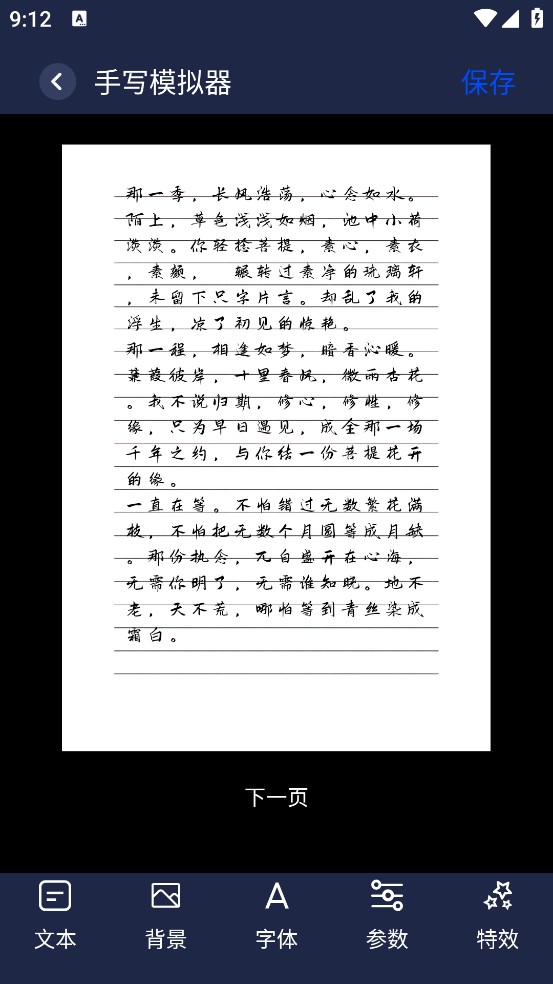 9:12
A
手写模拟器
保存
那一季，长风浩荡，心念如水。
陌上，草色浅浅如烟，池中小荷
淡淡。你轻捻菩提，素心，素衣
，素颜，　辗转过素净的琉璃轩
，未留下只字片言。却乱了我的
浮生，凉了初见的惊艳。
那一程，相逢如梦，暗香沁暖。
蒹葭彼岸，十里春风，微雨杏花
。我不说归期，修心，修性，修
缘，只为早日遇见，成全那一场
千年之约，与你结一份菩提花开
的缘。
一直在等。不怕错过无数繁花满
枝，不怕把无数个月圆等成月缺
。那份执念，兀自盛开在心海，
无需你明了，无需谁知晓。地不
老，天不荒，哪怕等到青丝染成
霜白。
下一页
文本
背景
字体
参数
特效